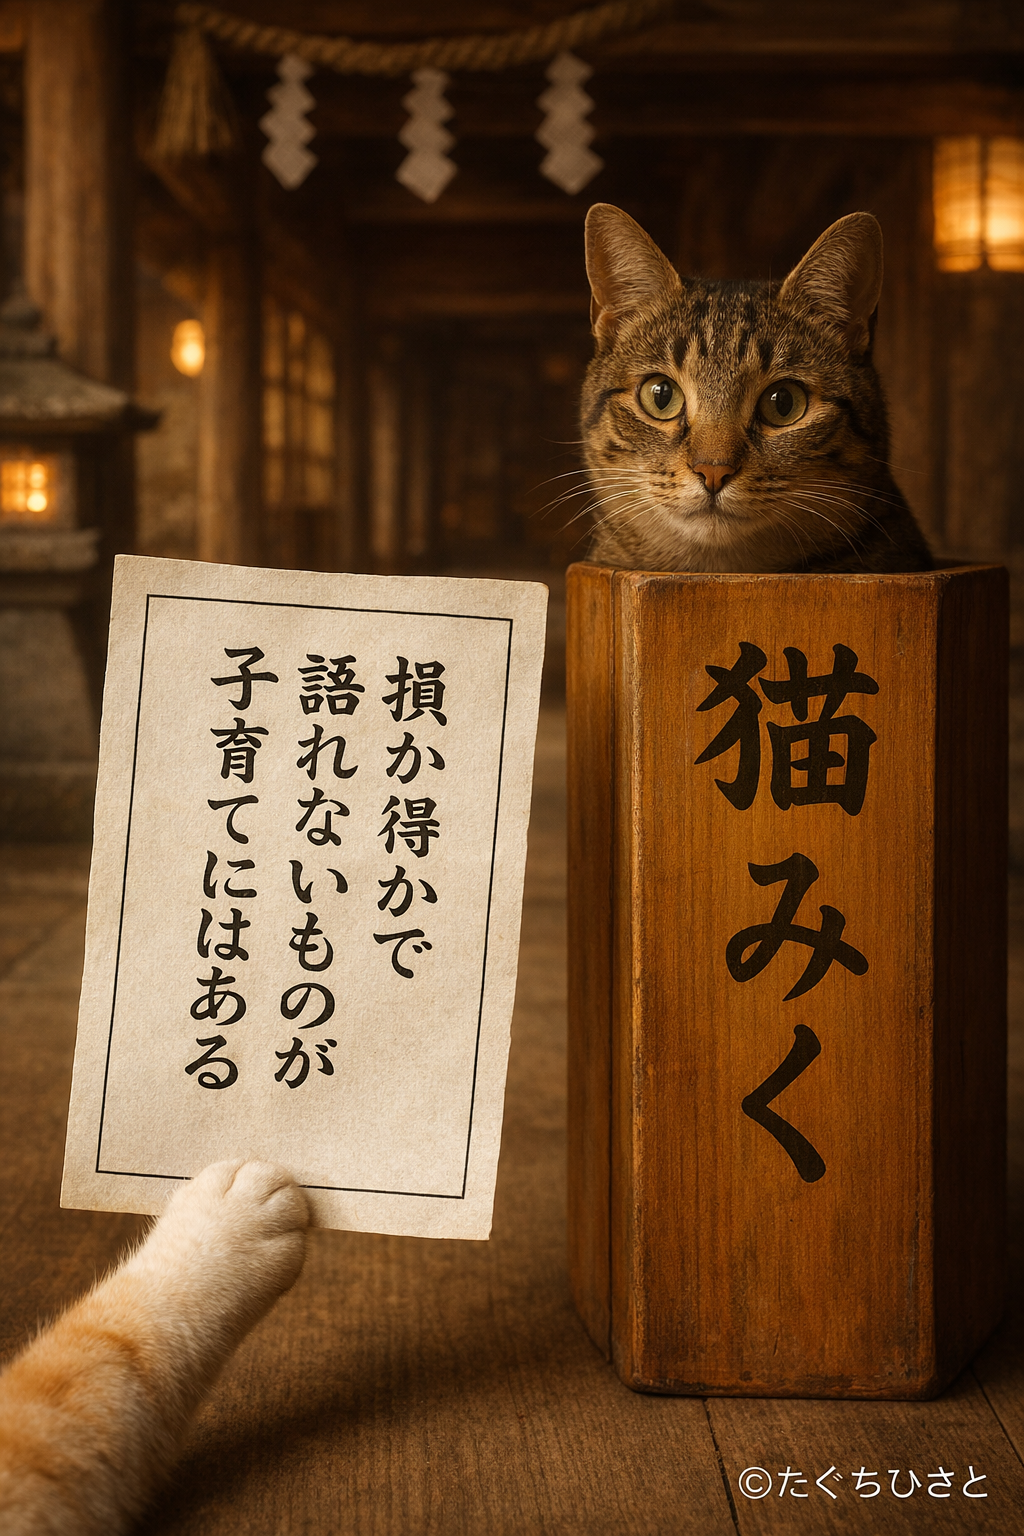 損か得かで
語れないものが
子育てにはある
猫みく
©たぐちひさと